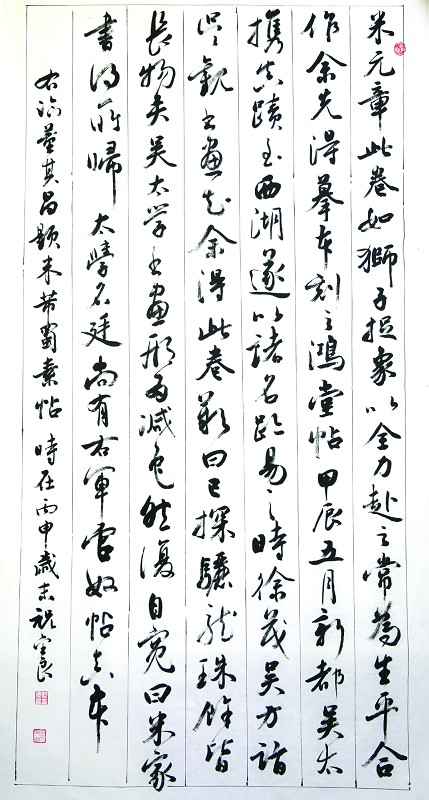 米元章此卷如獅子捉象以全力赴之當為生平合
作余先得摹本刻之鴻堂帖甲辰五月新都吳太
攜真蹟至西湖遂以諸名跡易之時徐茂吳方詣
吳觀書畫知余得此卷歎曰已探驪龍珠餘皆
長物矣吳太學書畫為減色然復自寬曰米家
書得所歸 太學名廷尚有右軍官奴帖真本
右臨董其昌題米芾蜀素帖 時在丙申歲末 祝良